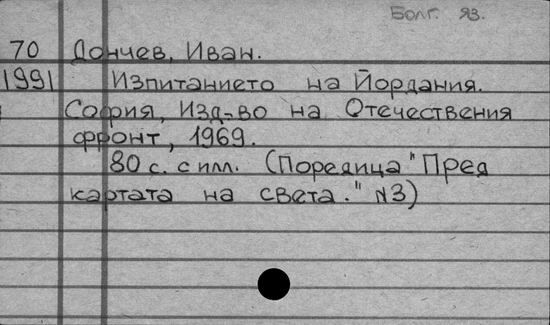 Болг. яз.
70 Дончев, Иван.
1991 Изпитанието на Йордания.
София, Изд-во на Отечествения
фронт, 1969.
80 с. с илл. (Поредица "Пред
картата на света." N3)